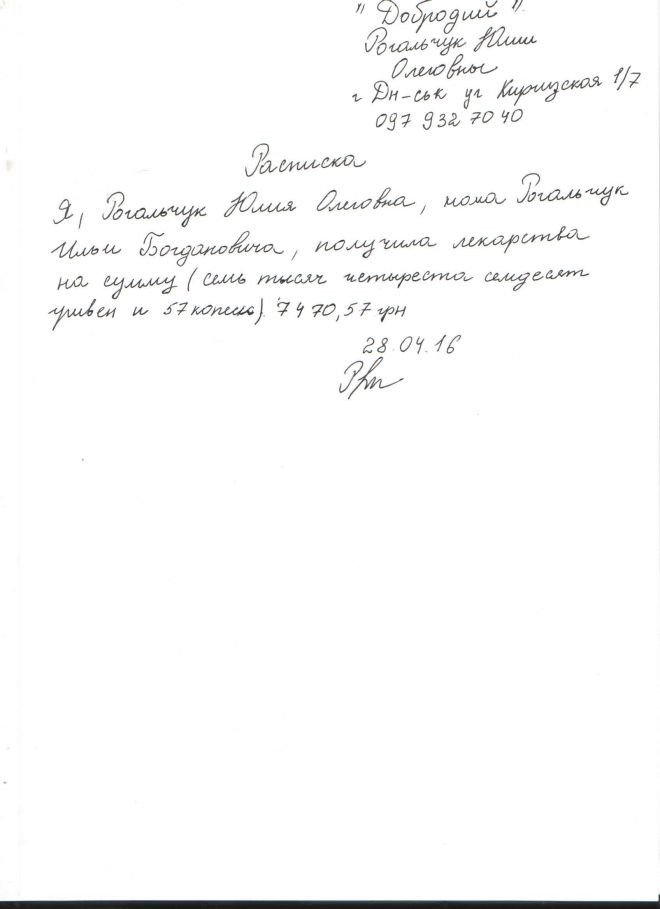 "Добродий".
Рогальчук Юлии
Олеговны
г Дн-ськ ул Киргизская 1/7
097 932 70 40
Расписка
Я, Рогальчук Юлия Олеговна, мама Рогальчук
Ильи Богдановича, получила лекарства
на сумму (семь тысяч четыреста семдесят
гривен и 57 копеек). 7470,57 грн
28.04.16